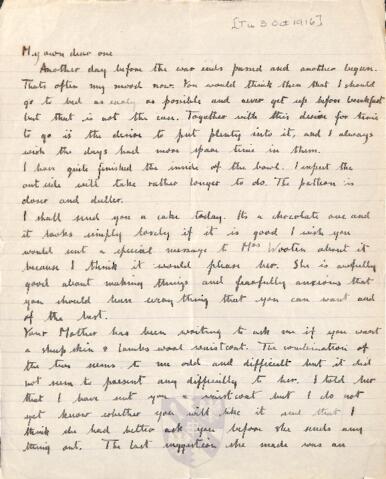 [Tu 3 Oct 1916]
My own dear one
Another day before the war ends passed and another begun.
Thats often my mood now. You would think then that I should
go to bed as early as possible and never get up before breakfast
but that is not the case. Together with this desire for time
to go is the desire to put plenty into it, and I always
wish the days had more spare time in them.
I have quite finished the inside of the bowl. I expect the
outside will take rather longer to do. The pattern is
closer and duller.
I shall send you a cake today. Its a chocolate one and
it looks simply lovely if it is good I wish you
would send a special message to Mrs Wooten about it
because I think it would please her. She is awfully
good about making things and fearfully anxious that
you should have everything that you can want and
of the best.
Your Mother has been writing to ask me if you want
a sheep skin & Lambs wool waistcoat. The combination of
the two seems to me odd and difficult but it did
not seem to present any difficulty to her. I told her
that I have sent you a waistcoat but I do not
yet know whether you will like it and that I
think she had better ask you before she sends any
thing out. The last suggestion she made was an